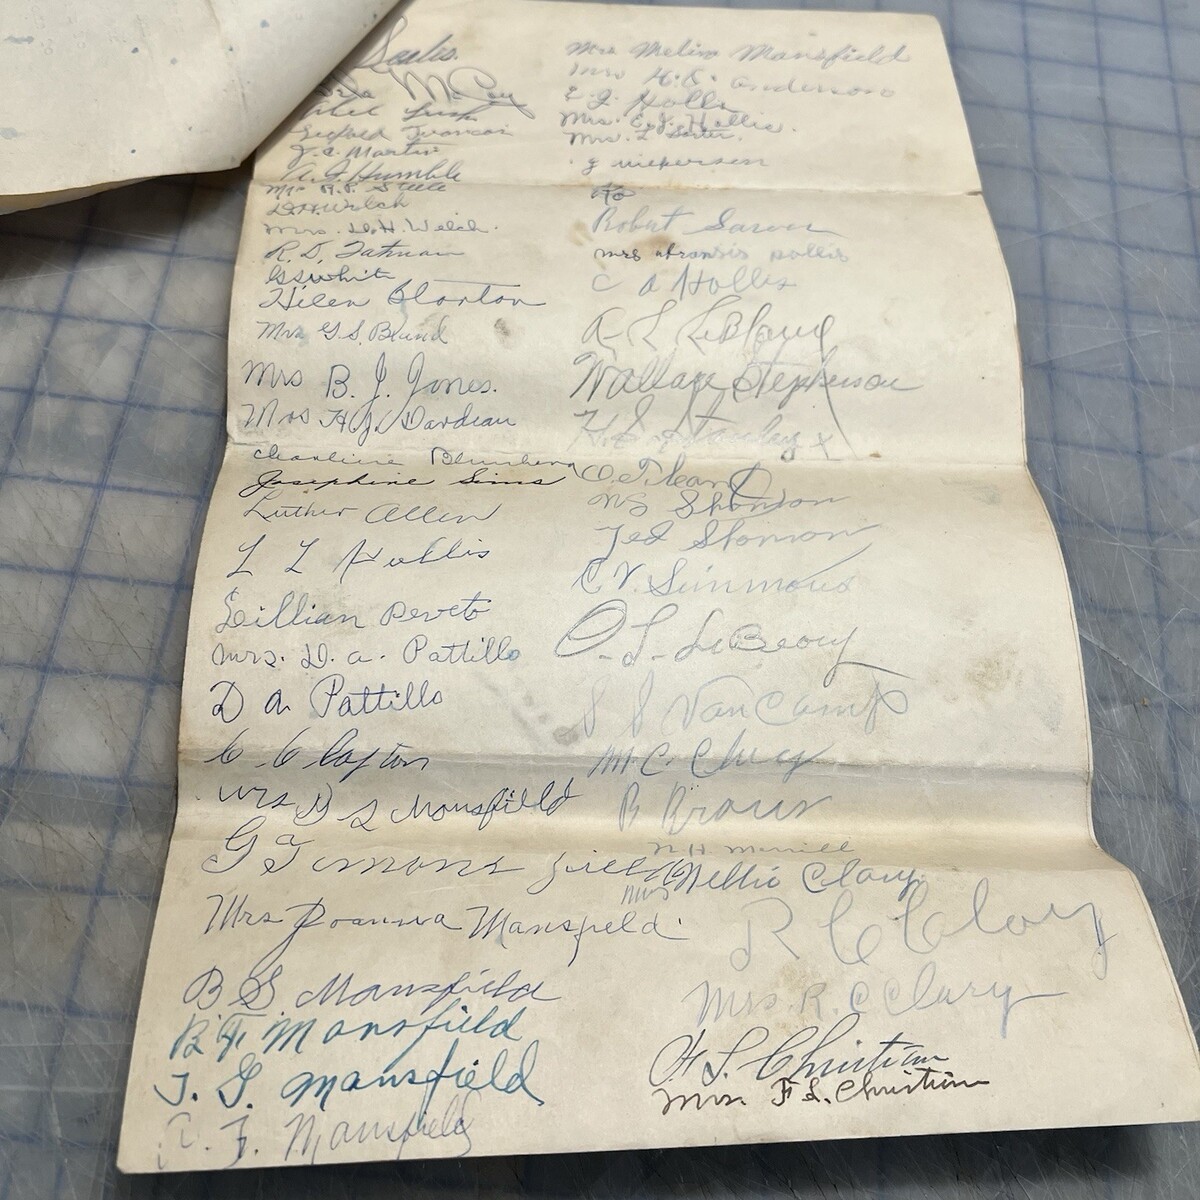 McCoy
J. A. Martin
A. J. Humble
Mrs R.P. Steele
D.H. Welch
Mrs. D.H. Welch.
R. D. Tatman
G S White
Hilen Clorton
Mrs G.S. Bland
Mrs B. J. Jones.
Mrs H.J. Dardean
Charline
Josephine Sims
Luther Allen
L L Hollis
Lillian Peveto
Mrs. D. A. Pattillo
D A Pattillo
C Clayton
Mrs B S Mansfield
G T mansfield
Mrs Joanna Mansfield
B S Mansfield
B. F. Mansfield
J. G. Mansfield
F. Mansfield
Mrs Melin Mansfield
Mrs H. E. Anderson
E. J. Hollis
Mrs. E. J. Hollis.
Mrs. L
Robert
Mrs Fransis Hollis
C A Hollis
Wallace Stephenson
H. S. Stanley x
Shannon
Ted Shannon
C. V. Simmons
O. L. LeBeouf
S S Van Camp
M. C. Clary
B Braus
N. H. Merrill
Mrs Nellie Clary
R C Clary
Mrs. R. C Clary
F. L. Christian
Mrs. F. L. Christian